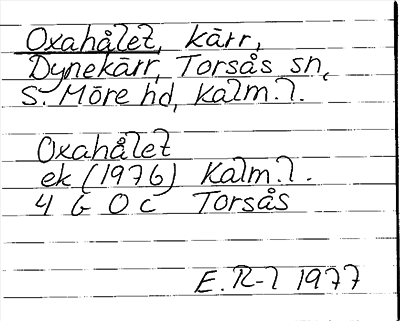 Oxahålet, kärr,
Dynekärr, Torsås sn,
S. Möre hd, Kalm. l.
Oxahålet
ek (1976) Kalm. l.
4 G 0 c Torsås
E. R-l 1977